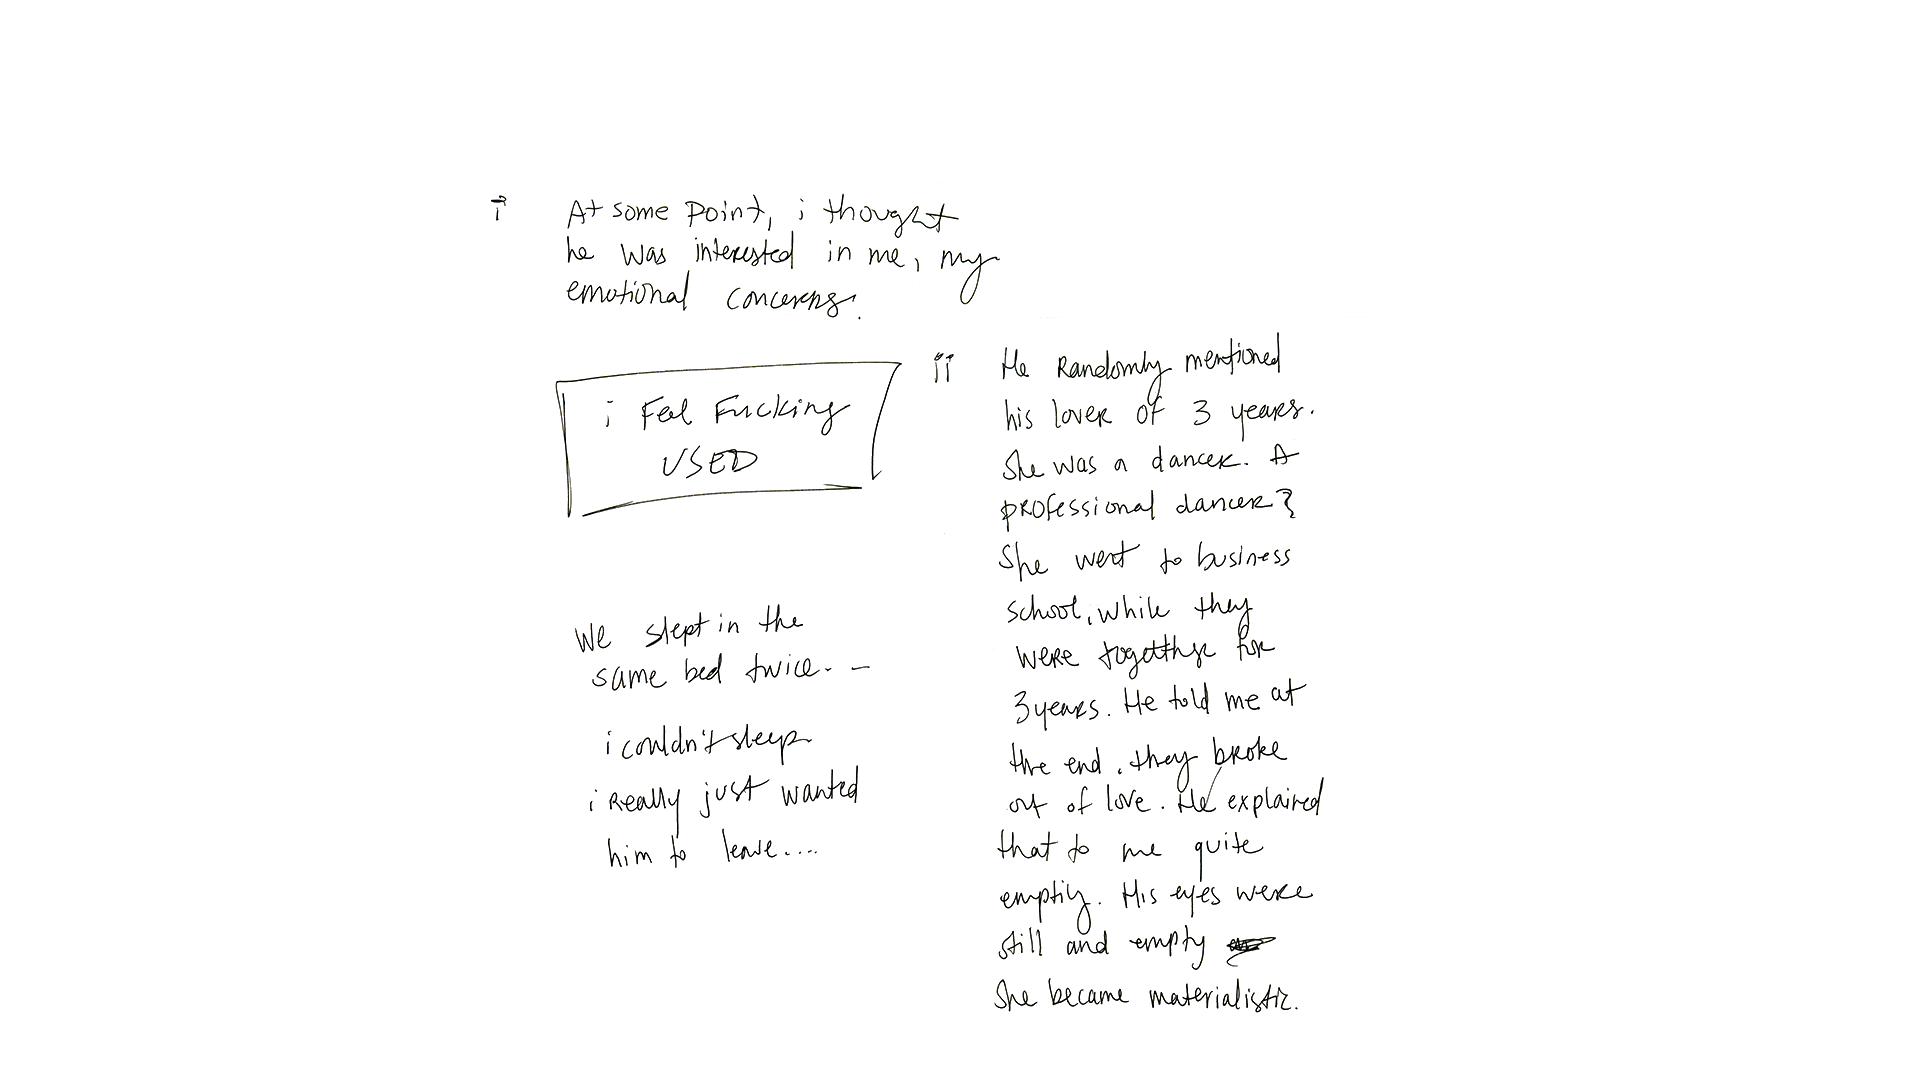 i
At some point, i thought
he was interested in me, my
emotional concerns.
i Feel Fucking
USED
We slept in the
same bed twice. -
i couldn't sleep
i really just wanted
him to leave....
ii
He Randomly mentioned
his lover of 3 years.
She was a dancer. A
professional dancer?
She went to business
school, while they
were togetther for
3 years. He told me at
the end, they broke
out of love. He explained
that to me quite
emptiy. His eyes were
still and empty
She became materialistic.